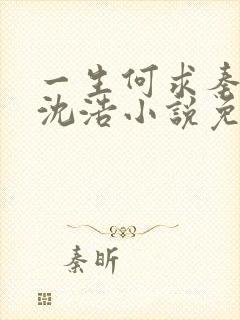 一生何求秦
沈浩小説免
秦昕